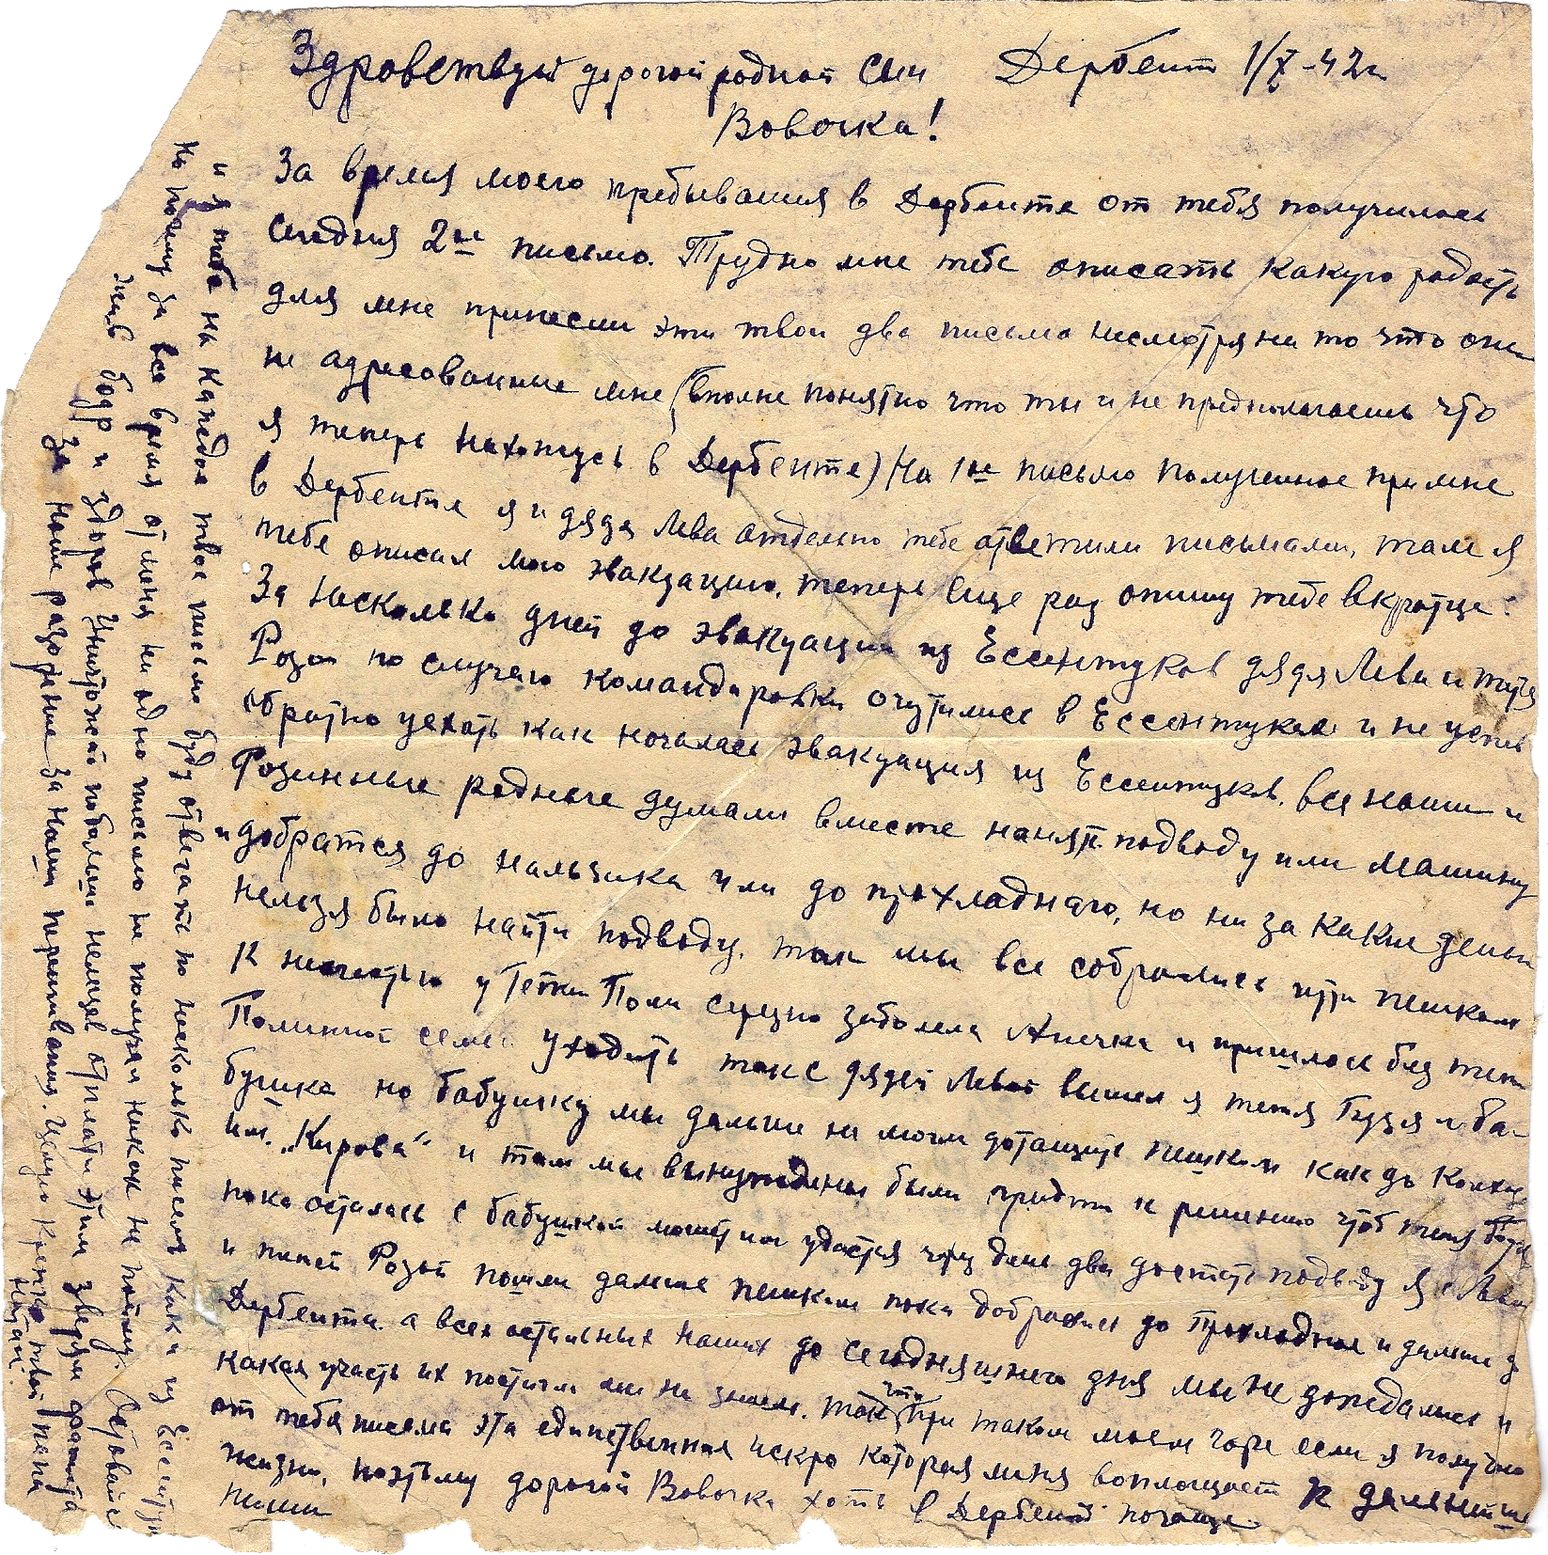 Здровствуй дорогой родной Сын Дербент 1/X-42г
Вовочка!
За время моего пребывания в Дербенте от тебя получилось
сегодня 2ое письмо. Трудно мне тебе описать какую радость
для мне принесли эти твои два письма несмотря на то что они
не адресованные мне (вполне понятно что ты и не предпологаешь что
я теперь нахожусь в Дербенте) На 1ое письмо полученное при мне
в Дербенте я и дядя Лева отдельно тебе ответили письмами, там я
тебе описал мою эвакуацию, теперь еще раз опишу тебе вкратце:
За несколько дней до эвакуации из Ессентуков дядя Лева и тетя
Розой по случаю командировки очутились в Ессентуках и не успев
обратно уехать как началась эвакуация из Ессентуков, все наши и
Розинные родные думали вместе нанять подводу или машину
и добратся до нальчика или до прохладного, но ни за какие деньги
нельзя было найти подводу, так мы все собрались итти пешком
К несчастью у Тетки Поли серезно заболела Анечка и пришлось без тети
Полиной семьи уходить так с дядей Левой вышел я тетя Бузя и ба-
бушка но бабушку мы дальше не могли дотащить пешком как до Колхоз
им. „Кирова" и там мы вынуждены были придти к решению чтоб тетя Бузя
пока осталась с бабушкой может им удастся через день два достать подводу я с Левой
и тетей Розой пошли дальше пешком пока добрались до Прохладной и дальше до
Дербента. а всех остальных наших до сегодняшнего дня мы не дождались и
какая участь их постигла мы не знаем. так что при таком моем горе если я получаю
от тебя письма эта единственная искра которая меня воплощает к дальнейше
жизни, поэтому дорогой Вовочка хоть в Дербент почаще
пиши
и я тебе на каждое твое письмо буду отвечать по несколько писем как и из Ессентук
но почему за все время от меня ни одно письмо не получал никак не пойму. Оставайся
жив бодр и здоров Уничтожай побольше немцев отплати этим зверям фашистам
За наше разорение за наши переживания. Целую крепко твой папа